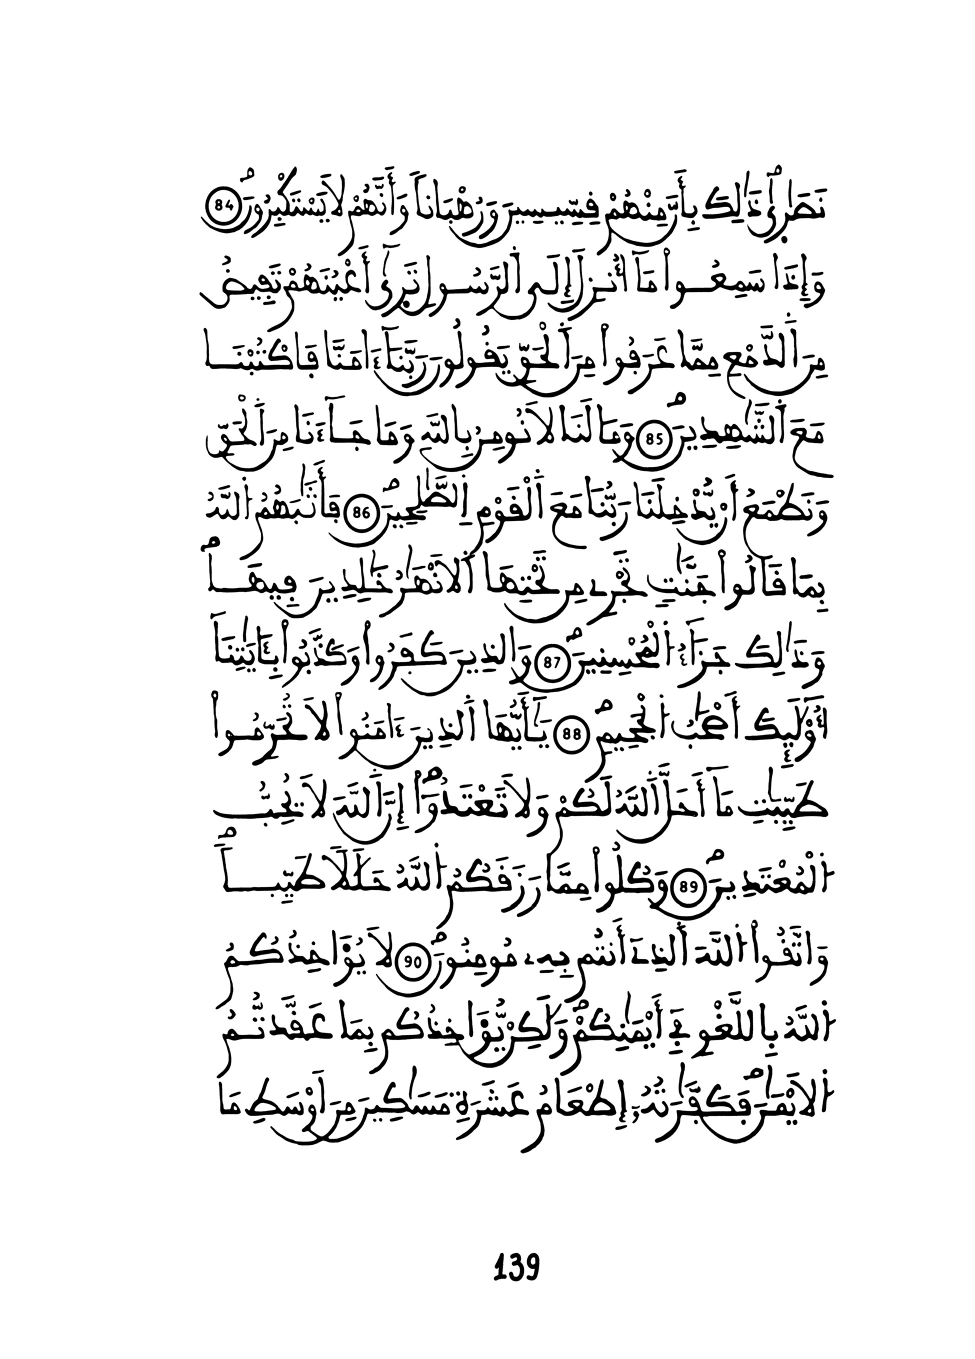 نَصَٰر۪ىٰۖ ذَٰلِكَ بِأَنَّ مِنْهُمْ قِسِّيسِينَ وَرُهْبَاناٗ وَأَنَّهُمْ لَا يَسْتَكْبِرُونَۖ 84
وَإِذَا سَمِعُواْ مَآ أُنزِلَ إِلَى اَ۬لرَّسُولِ تَر۪ىٰٓ أَعْيُنَهُمْ تَفِيضُ
مِنَ اَ۬لدَّمْعِ مِمَّا عَرَفُواْ مِنَ اَ۬لْحَقِّ يَقُولُونَ رَبَّنَآ ءَامَنَّا فَاكْتُبْنَا
مَعَ اَ۬لشَّٰهِدِينَۖ 85 وَمَا لَنَا لَا نُومِنُ بِاللَّهِ وَمَا جَآءَنَا مِنَ اَ۬لْحَقِّ
وَنَطْمَعُ أَنْ يُّدْخِلَنَا رَبُّنَا مَعَ اَ۬لْقَوْمِ اِ۬لصَّٰلِحِينَۖ 86 فَأَثَٰبَهُمُ اُ۬للَّهُ
بِمَا قَالُواْ جَنَّٰتٖ تَجْرِے مِن تَحْتِهَا اَ۬لَانْهَٰرُ خَٰلِدِينَ فِيهَاۖ
وَذَٰلِكَ جَزَآءُ اُ۬لْمُحْسِنِينَۖ 87 وَالذِينَ كَفَرُواْ وَكَذَّبُواْ بِـَٔايَٰتِنَآ
أُوْلَٰٓئِكَ أَصْحَٰبُ اُ۬لْجَحِيمِۖ 88 يَٰٓأَيُّهَا اَ۬لذِينَ ءَامَنُواْ لَا تُحَرِّمُواْ
طَيِّبَٰتِ مَآ أَحَلَّ اَ۬للَّهُ لَكُمْ وَلَا تَعْتَدُوٓاْۖ إِنَّ اَ۬للَّهَ لَا يُحِبُّ
اُ۬لْمُعْتَدِينَۖ 89 وَكُلُواْ مِمَّا رَزَقَكُمُ اُ۬للَّهُ حَلَٰلاٗ طَيِّباٗۖ
وَاتَّقُواْ اُ۬للَّهَ اَ۬لذِےٓ أَنتُم بِهِۦ مُومِنُونَۖ 90 لَا يُؤَاخِذُكُمُ
اُ۬للَّهُ بِاللَّغْوِ فِےٓ أَيْمَٰنِكُمْۖ وَلَٰكِنْ يُّؤَاخِذُكُم بِمَا عَقَّدتُّمُ
اُ۬لَايْمَٰنَۖ فَكَفَّٰرَتُهُۥٓ إِطْعَامُ عَشَرَةِ مَسَٰكِينَ مِنَ اَوْسَطِ مَا
139